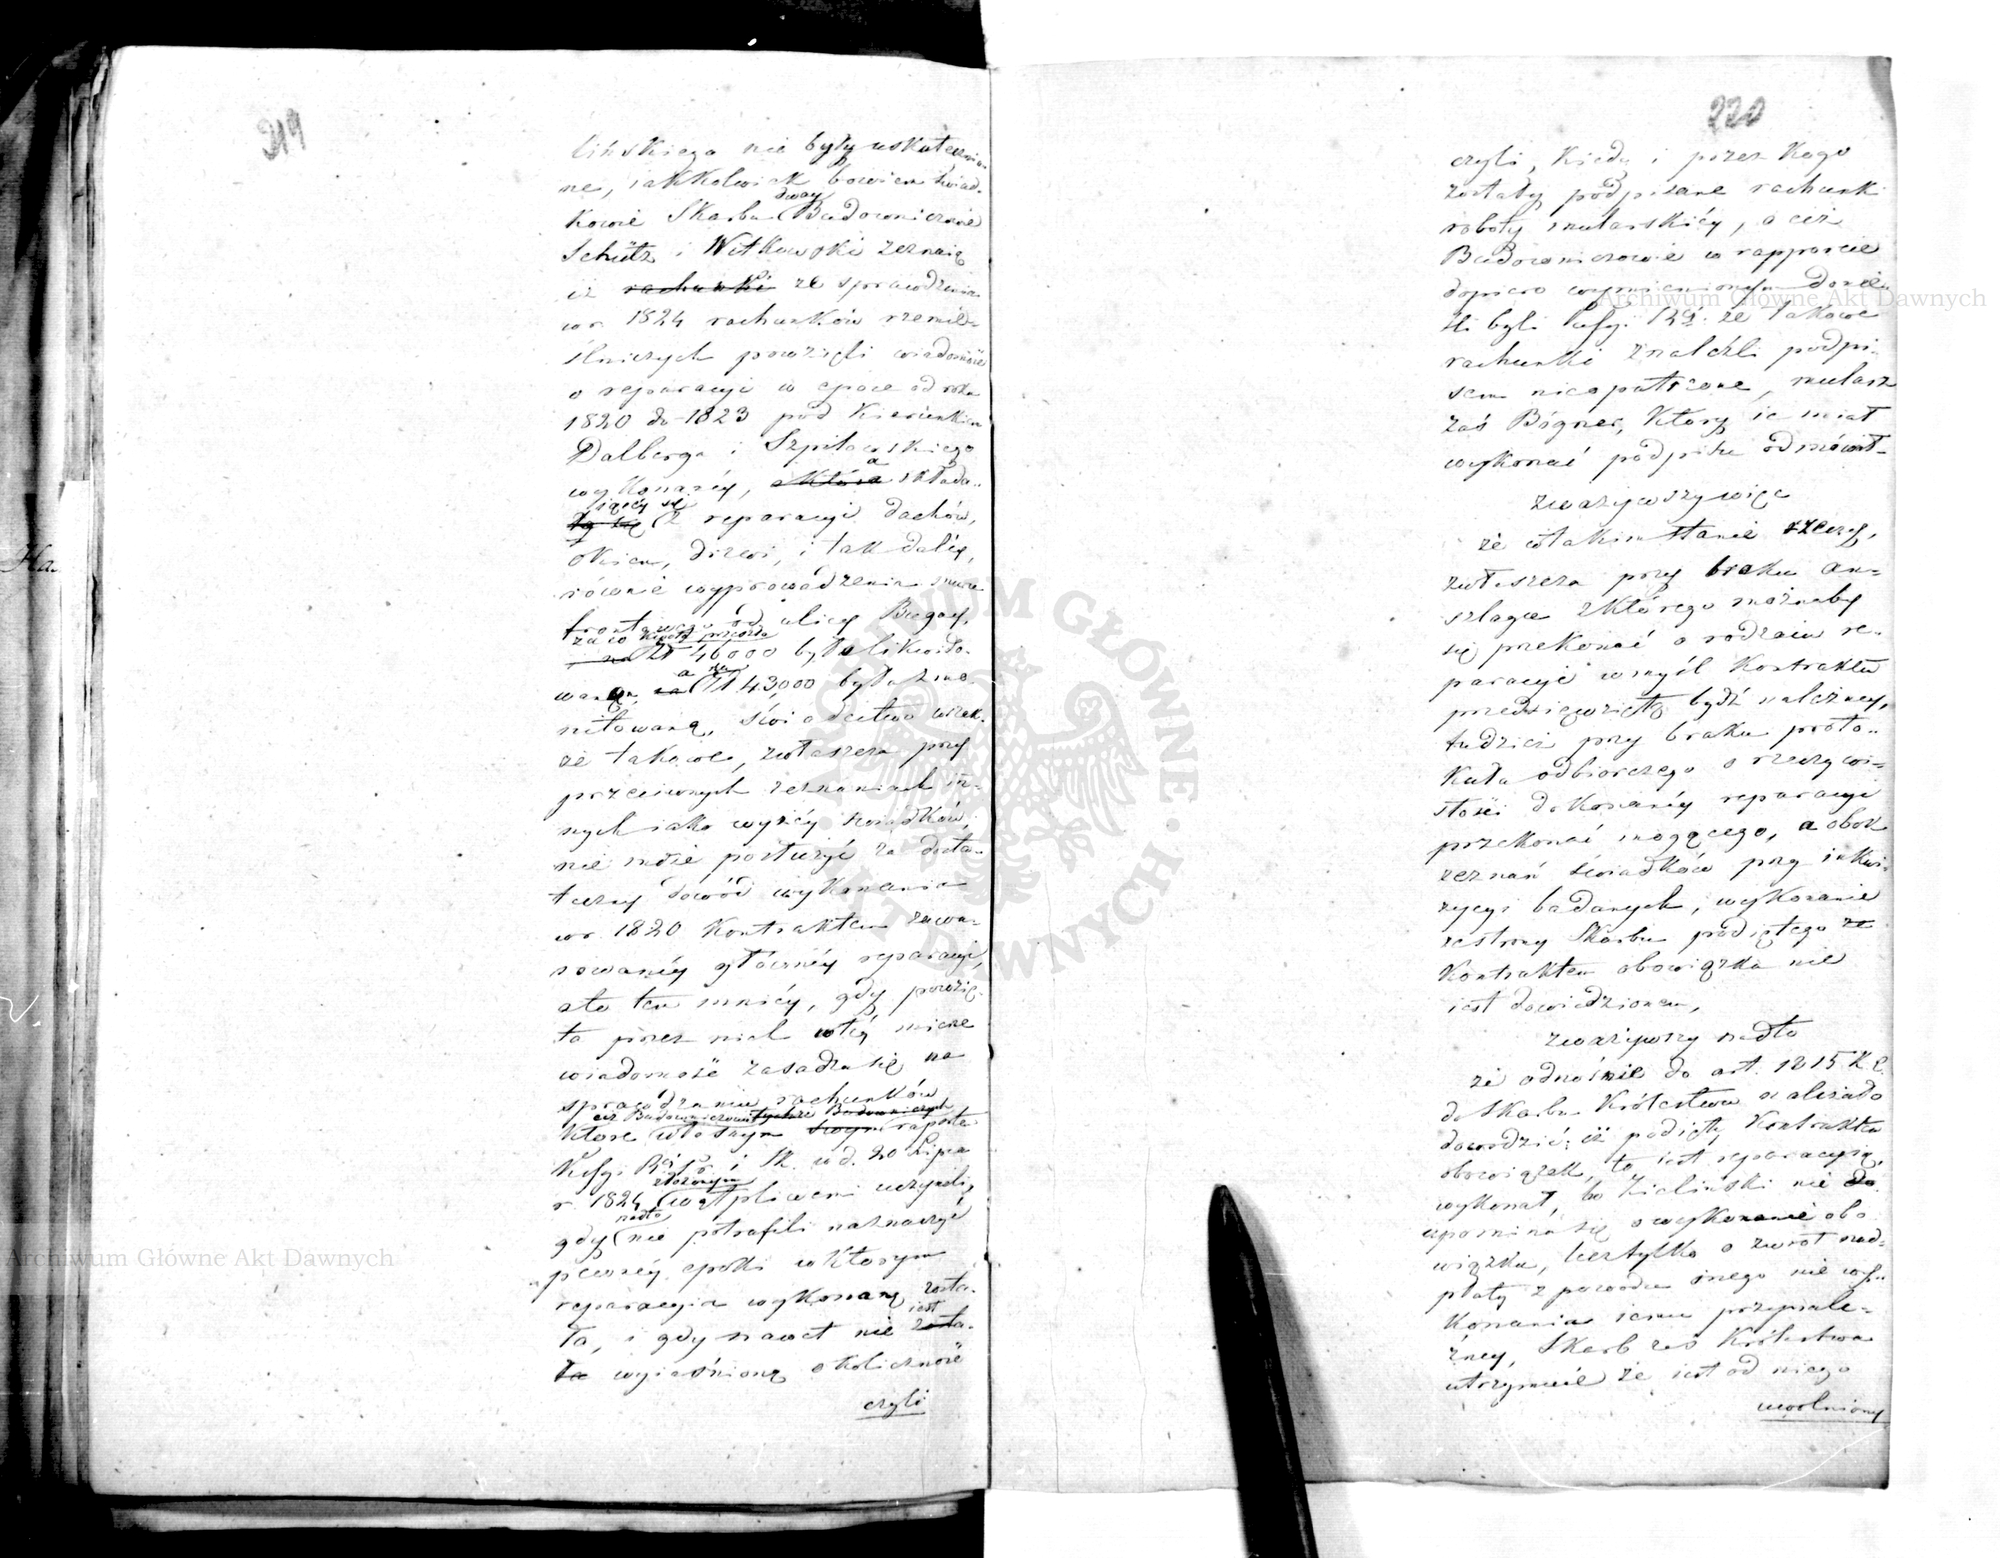 219
lińskiego nie były uskutecznio-
ne, iakkolwiek bowiem świad-
kowie Skarbu dway Budowniczowie
Schütz i Witkowski zeznaią
iż rachunki ze sprawdzenia
w r. 1824 rachunków rzemie-
ślniczych powzięli wiadomość
o reparacyi w epoce od roku
1820 do 1823 pod kierunkiem
Dalberga i Szpilowskiego
wykonanéy, a która a składa-
ła się iącéy się z reparacyi dachów,
okien, drzwi, i tak daléy,
równie wyprowadzenia muru
frontowego od ulicy Bugay,
za co kwota przeszło
na Zł 46000 była likwido-
waną, a na Zł 43,000 była zmo-
nitowaną, świadectwo wszak-
że takowe, zwłaszcza przy
przeciwnych zeznaniach in-
nych iako wyżéy świadków,
nie może posłużyć za dosta-
teczny dowód wykonania
w r. 1820 Kontraktem zawa-
rowanéy głównéy reparacyi,
ale tem mniéy, gdy powzię-
ta przez nich w téy mierze
wiadomość zasadza się na
sprawdzeniu rachunków
ciż Budowniczowie tychże Budowniczych
które własnym swym raporcie
Kssyi R. S. i Sk. w d. 20 Lipca
r. 1824 złożonym wątpliwemi uczynili,
gdy nadto nie potrafili naznaczyć
pewnéy epoki w któréy
reparacyia wykonaną zosta-
ła, i gdy nawet nie iest zosta-
ła wyiaśnioną okoliczność
czyli
220
czyli, kiedy i przez kogo
zostały podpisane rachunki
roboty mularskiéy, o ciż
Budowniczowie w rapporcie
dopiero wymienionym donie-
śli byli Kssyi Rz. że takowe
rachunki znaleźli podpi-
sem nieopatrzone, mularz
zaś Bógner, który ie miał
wykonać podpisu odmówił.
Zważywszy więc
że w takim stanie rzeczy,
zwłaszcza przy braku an-
szlagu z którego możnaby
się przekonać o rodzaiu re-
paracyi w myśl Kontraktu
przedsięwziętą bydź należney,
tudzież przy braku proto-
kułu odbiorczego o rzeczywi-
stości dokonanéy reparacyi
przekonać mogącego, a obok
zeznań świadków przy inkwi-
zycyi badanych, wykonanie
ze strony Skarbu podiętego ze
Kontraktem obowiązku nie
iest dowiedzionem,
Zważywszy nadto
że odnośnie do art. 1315 K.C.
do Skarbu Królestwa należało
dowodzić: iż podięty Kontraktem
obowiązek, to iest reparacyią,
wykonał, bo Zieliński nie do
upomina się o wykonanie obo
wiązku, lecz tylko o zwrot nad-
płaty z powodu onego nie wy-
konania iemu przynale-
żney, Skarb zaś Królestwa
utrzymuie że iest od niego
uwolniony
Archiwum Główne Akt Dawnych
Archiwum Główne Akt Dawnych
ARCHIWUM GŁÓWNE AKT DAWNYCH